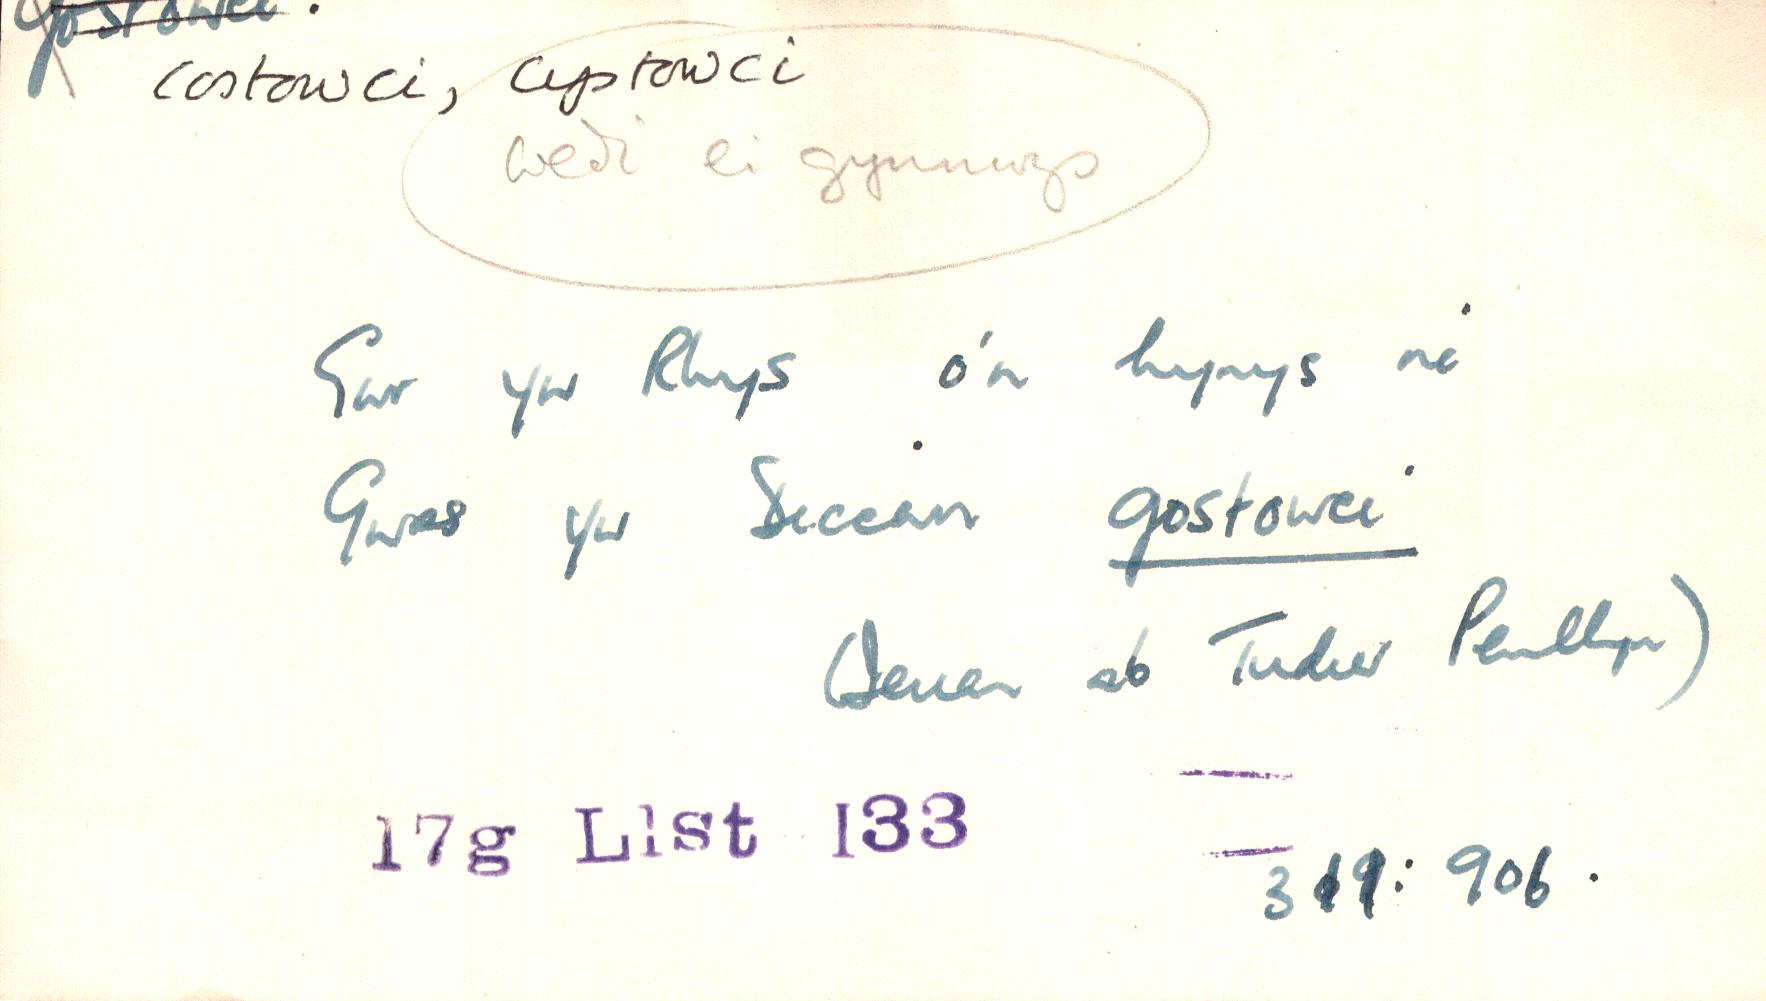 gostowci.
costowci, cystowci
wedi ei gynnwys
Gwr yw Rhys o'n hynys ni
Gwas yw Siccan gostowci
(Ieuan ab Tudur Penllyn)
17g Llst 133
319: 906.